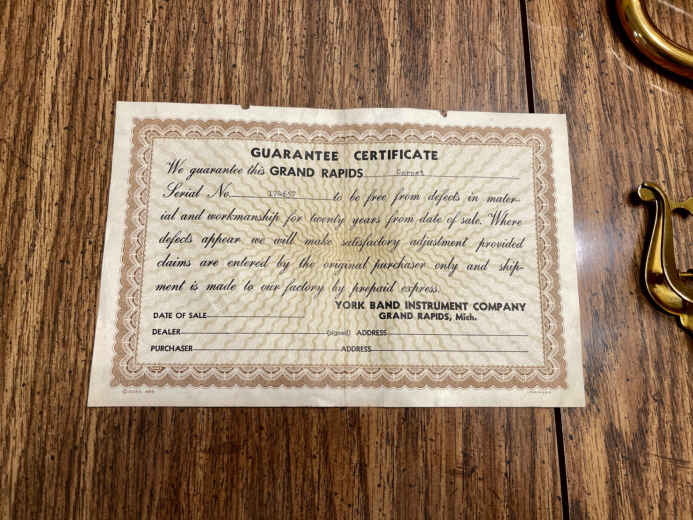 GUARANTEE CERTIFICATE
We guarantee this GRAND RAPIDS Cornet
Serial No. to be free from defects in mater-
ial and workmanship for twenty years from date of sale. Where
defects appear we will make satisfactory adjustment provided
claims are entered by the original purchaser only and ship-
ment is made to our factory by prepaid express.
YORK BAND INSTRUMENT COMPANY
GRAND RAPIDS, Mich.
DATE OF SALE
DEALER (signed) ADDRESS
PURCHASER ADDRESS